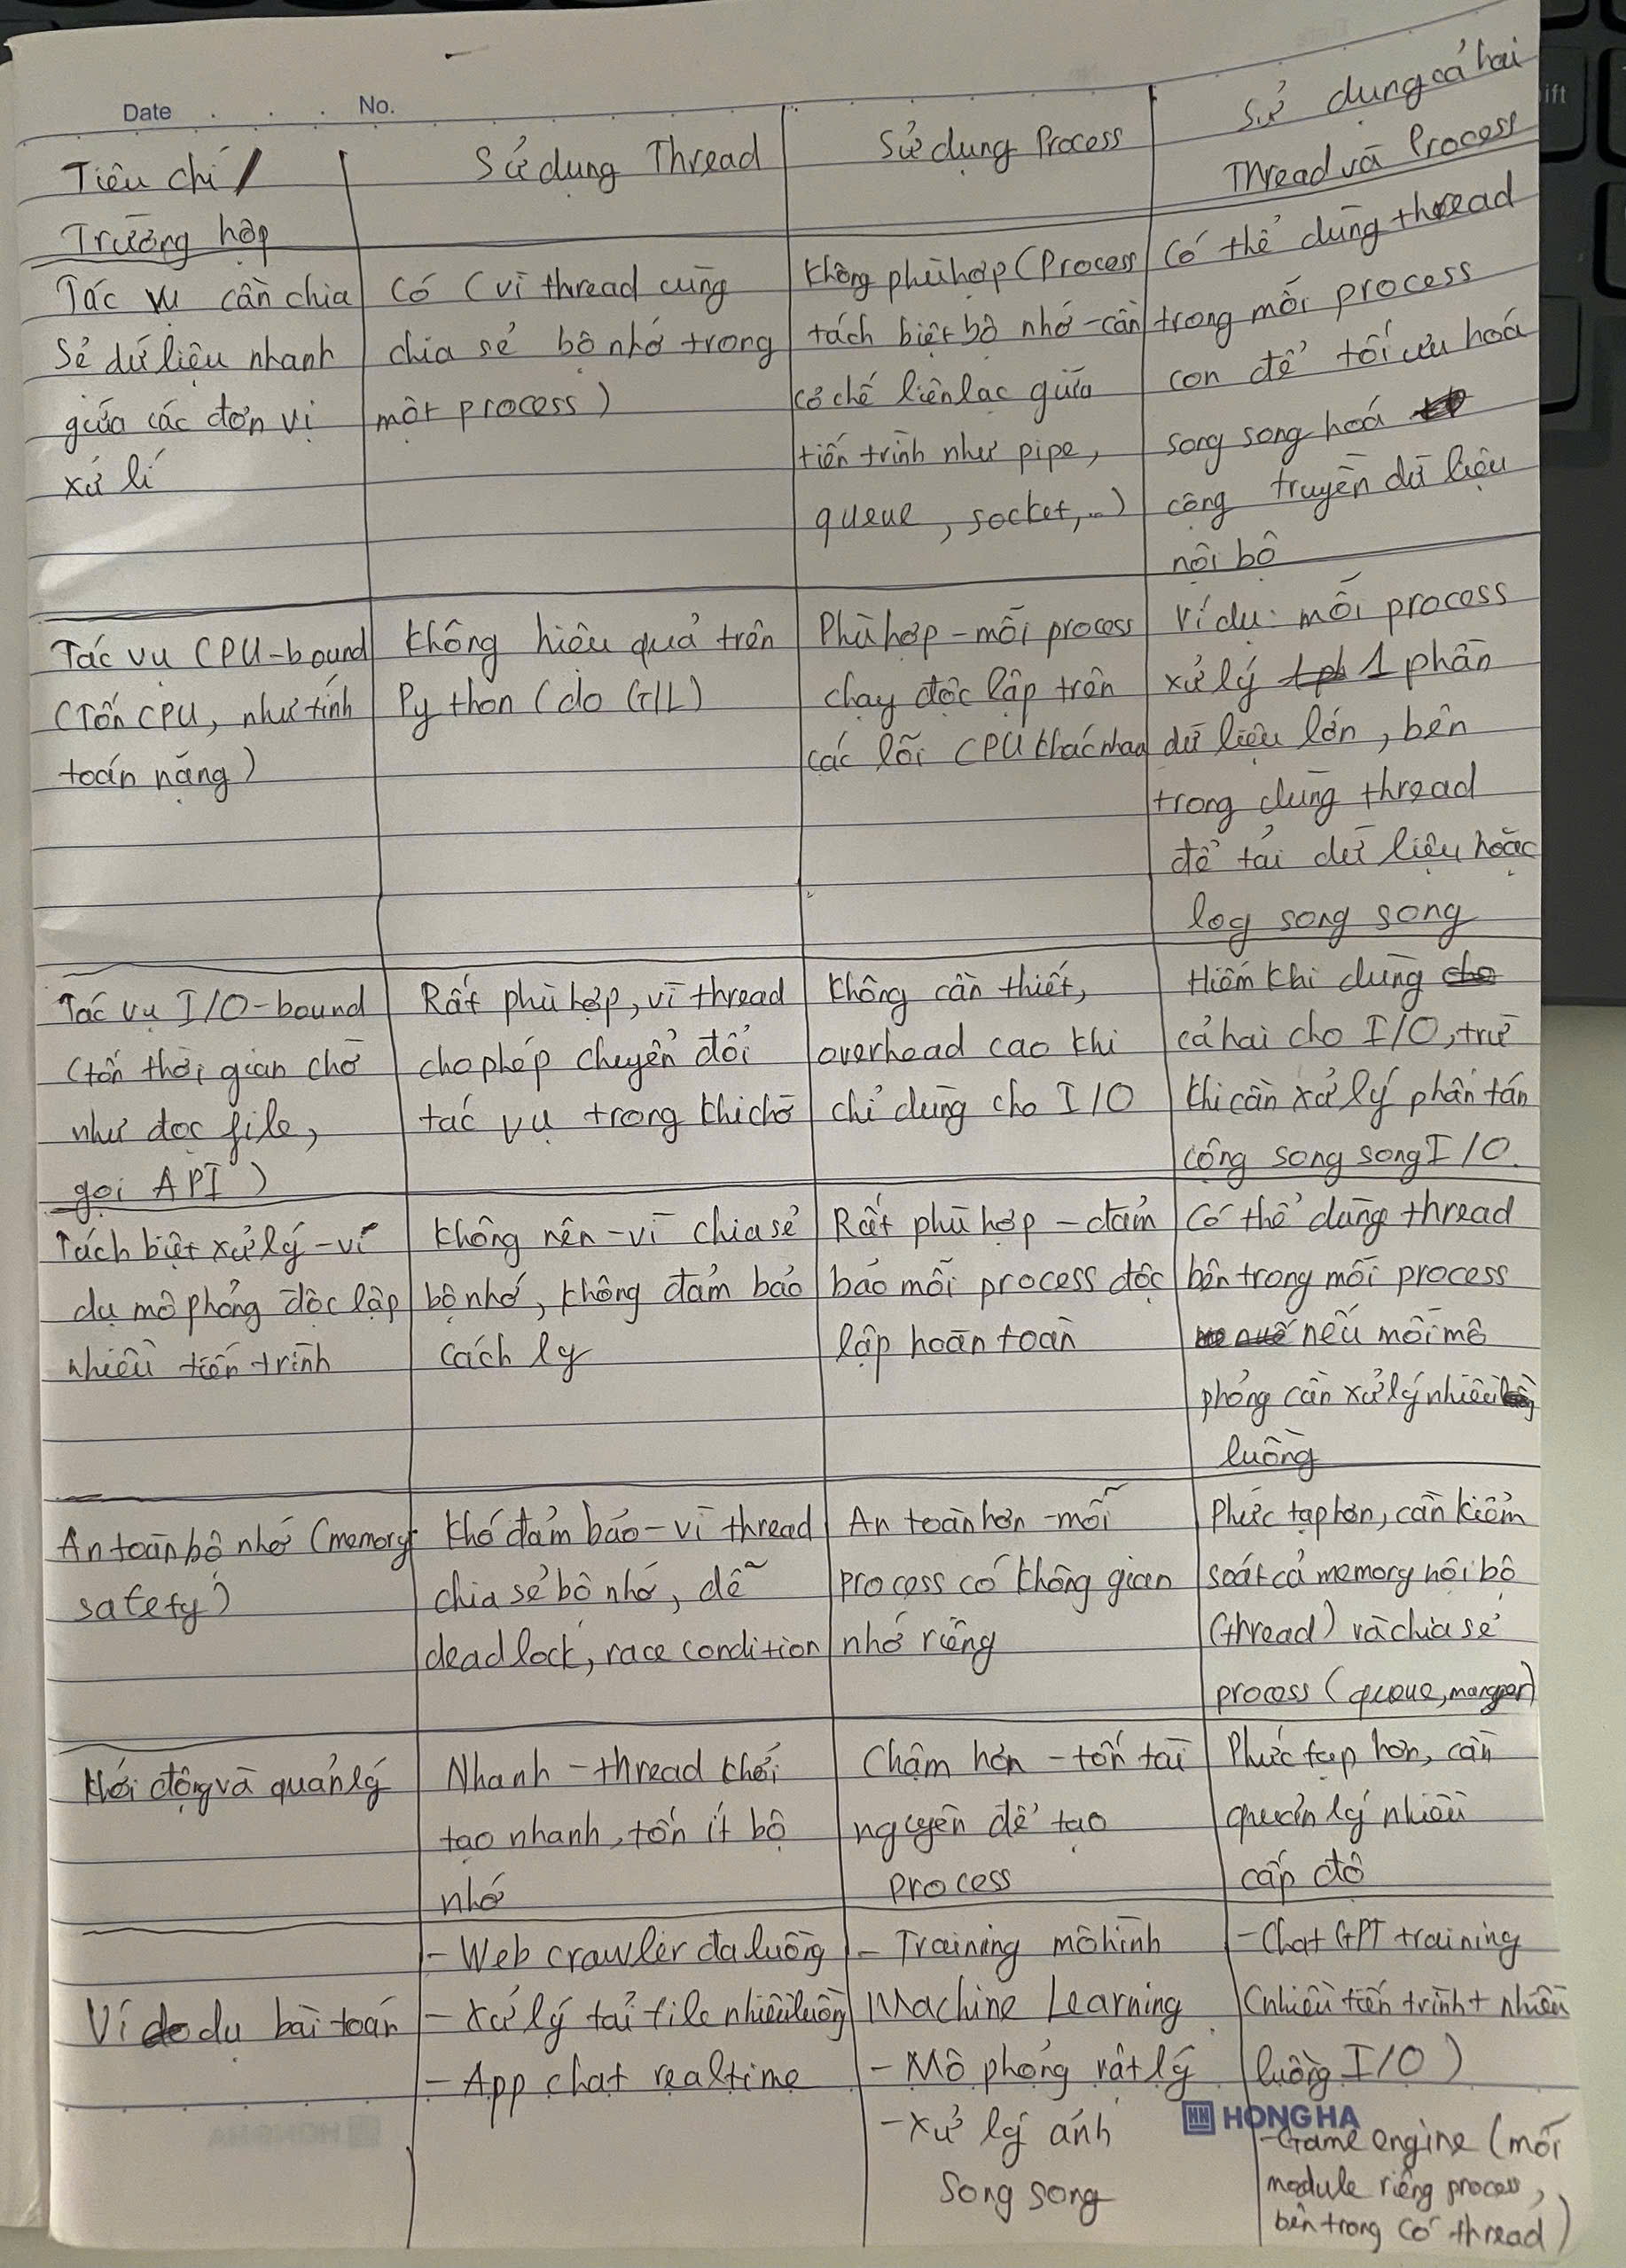 Date No.
Tiêu chí /
Trường hợp
Sử dụng Thread
Sử dụng Process
Sử dụng cả hai
Thread và Process
Tác vụ cần chia
sẻ dữ liệu nhanh
giữa các đơn vị
xử lí
Có (vì thread cùng
chia sẻ bộ nhớ trong
một process)
Không phù hợp (Process
tách biệt bộ nhớ - cần
cơ chế liên lạc giữa
tiến trình như pipe,
queue, socket,..)
Có thể dùng thread
trong mỗi process
con để tối ưu hoá
song song hoá
cộng truyền dữ liệu
nội bộ
Tác vụ CPU-bound
(Tốn CPU, như tính
toán nặng)
Không hiệu quả trên
Python (do GIL)
Phù hợp - mỗi process
chạy độc lập trên
các lõi CPU khác nhau
Ví dụ: mỗi process
xử lý 1 phần
dữ liệu lớn, bên
trong dùng thread
để tải dữ liệu hoặc
log song song
Tác vụ I/O-bound
(tốn thời gian chờ
như đọc file,
gọi API)
Rất phù hợp, vì thread
cho phép chuyển đổi
tác vụ trong khi chờ
Không cần thiết,
overhead cao khi
chỉ dùng cho I/O
Hiếm khi dùng
cả hai cho I/O, trừ
khi cần xử lý phân tán
cộng song song I/O.
Tách biệt xử lý - ví
dụ mô phỏng độc lập
nhiều tiến trình
Không nên - vì chia sẻ
bộ nhớ, không đảm bảo
cách ly
Rất phù hợp - đảm
bảo mỗi process độc
lập hoàn toàn
Có thể dùng thread
bên trong mỗi process
nếu mỗi mô
phỏng cần xử lý nhiều
luồng
An toàn bộ nhớ (memory
safety)
Khó đảm bảo - vì thread
chia sẻ bộ nhớ, dễ
deadlock, race condition
An toàn hơn - mỗi
process có không gian
nhớ riêng
Phức tạp hơn, cần kiểm
soát cả memory nội bộ
(thread) và chia sẻ
process (queue, manager)
Khởi động và quản lý
Nhanh - thread khởi
tạo nhanh, tốn ít bộ
nhớ
Chậm hơn - tốn tài
nguyên để tạo
process
Phức tạp hơn, cần
quản lý nhiều
cấp độ
Ví dụ bài toán
- Web crawler đa luồng
- Xử lý tải file nhiều luồng
- App chat realtime
- Training mô hình
Machine Learning
- Mô phỏng vật lý
- Xử lý ảnh
song song
- Chat GPT training
(nhiều tiến trình + nhiều
luồng I/O)
HONG HA
- Game engine (mỗi
module riêng process,
bên trong có thread)